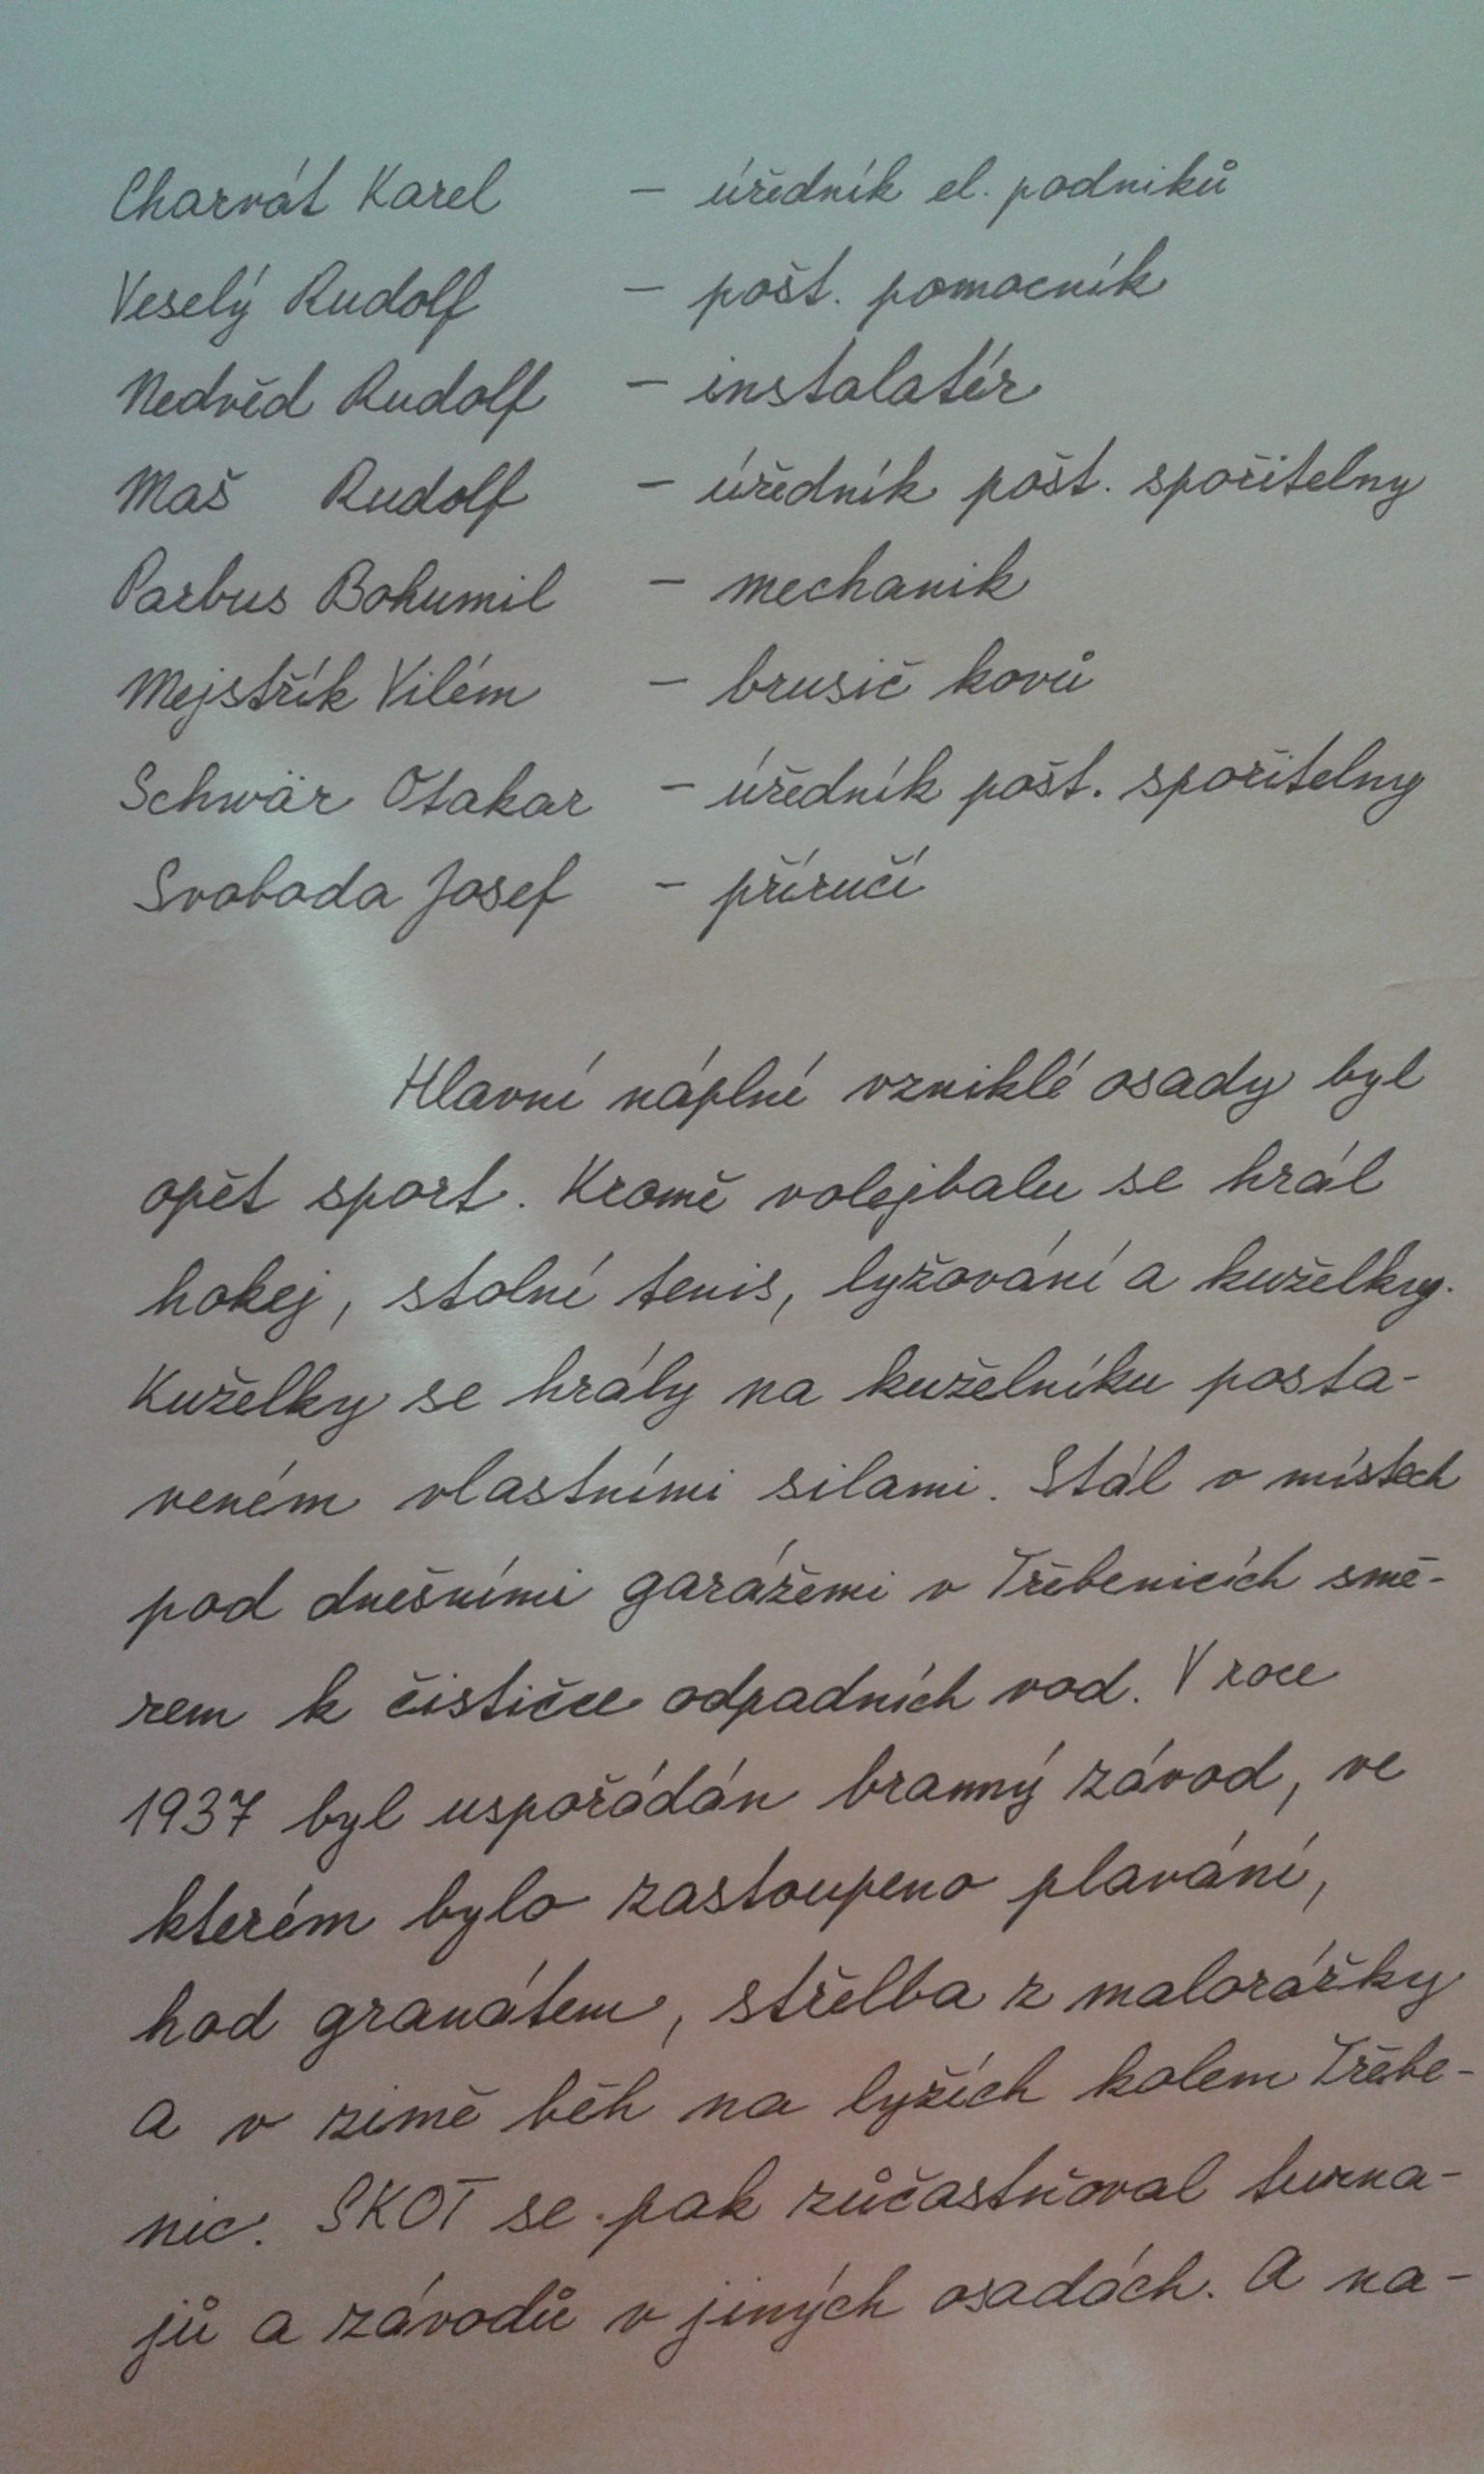 Charvát Karel – úředník el. podniků
Veselý Rudolf – pošt. pomocník
Nedvěd Rudolf – instalatér
Maš Rudolf – úředník pošt. spořitelny
Parbus Bohumil – mechanik
Mejstřík Vilém – brusič kovů
Schwär Otakar – úředník pošt. spořitelny
Svoboda Josef – příručí
Hlavní náplní vzniklé osady byl
opět sport. Kromě volejbalu se hrál
hokej, stolní tenis, lyžování a kuželky.
Kuželky se hrály na kuželníku posta-
veném vlastními silami. Stál v místech
pod dnešními garážemi v Třebenicích smě-
rem k čističce odpadních vod. V roce
1937 byl uspořádán branný závod, ve
kterém bylo zastoupeno plavání,
hod granátem, střelba z malorážky
a v zimě běh na lyžích kolem Třebe-
nic. SKOT se pak zůčastňoval turna-
jů a závodů v jiných osadách. A na-